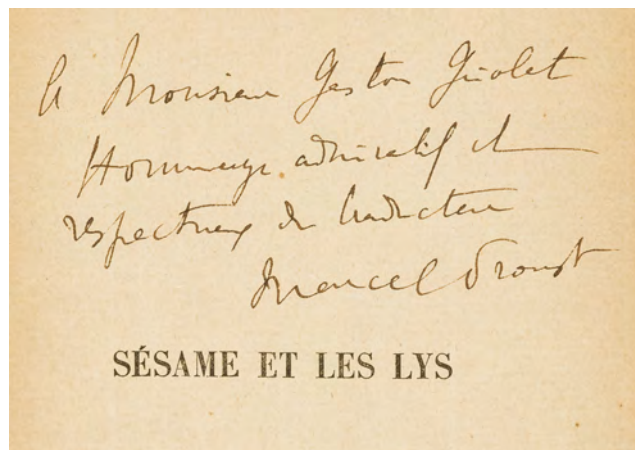 A Monsieur Gaston
Hommage admiratif et
respectueux du traducteur
Marcel Proust
SÉSAME ET LES LYS